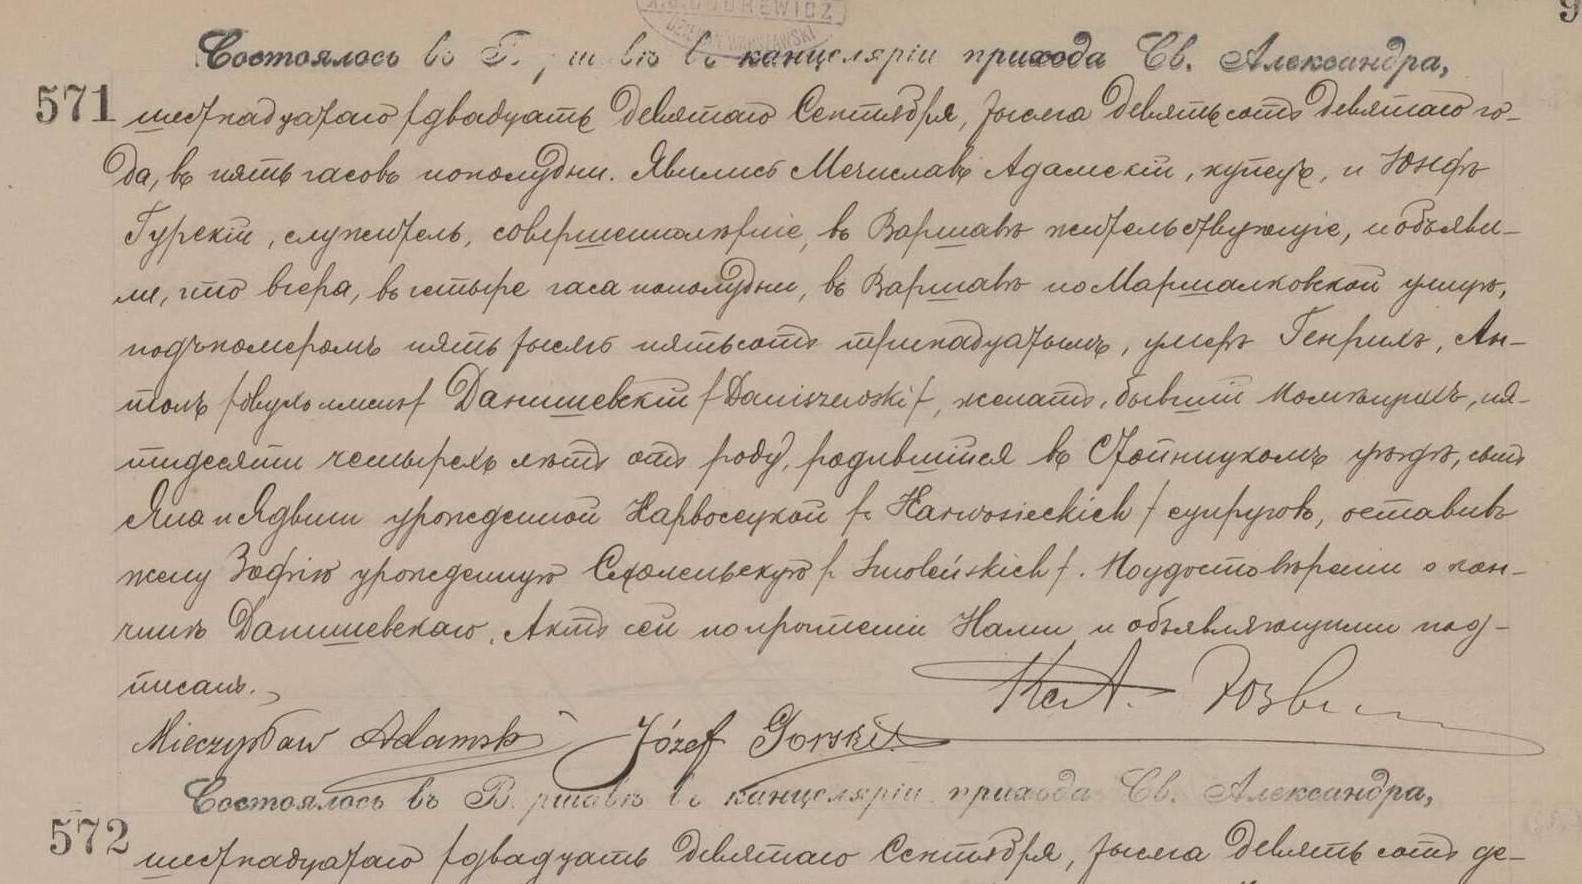 DZIEKAN WARSZAWSKI
9
Состоялось въ В ш вѣ въ канцеляріи прихода Св. Александра,
571 шестнадцатаго /двадцать девятаго Сентября, тысяча девятьсотъ девятаго го-
да, въ пять часовъ пополудни. Явились Мечиславъ Адамскій, купецъ, и Юзефъ
Гурскій, служитель, совершеннолѣтніе, въ Варшавѣ жительствующіе, и объяви-
ли, что вчера, въ четыре часа пополудни, въ Варшавѣ по Маршалковской улицѣ,
подъ номеромъ пять тысячъ пятьсотъ тринадцатымъ, умеръ Генрихъ, Ан-
тонъ /двухъ именъ/ Данишевскій /Daniszewski/, женатъ, бывшій помѣщикъ, пя-
тидесяти четырехъ лѣтъ отъ роду, родившійся въ уѣздѣ, сынъ
Яна и Ядвиги урожденной Карвосецкой /z Karwosieckich/ супруговъ, оставивъ
жену Зофію урожденную Смоленьскую /z Smoleńskich/. По удостовѣреніи о кон-
чинѣ Данишевскаго, Актъ сей по прочтеніи Нами и объявляющими под-
писанъ.
Mieczysław Adamski Józef Gorski
Состоялось въ В ршавѣ въ канцеляріи прихода Св. Александра,
572 шестнадцатаго /двадцать девятаго Сентября, тысяча девятьсотъ де-